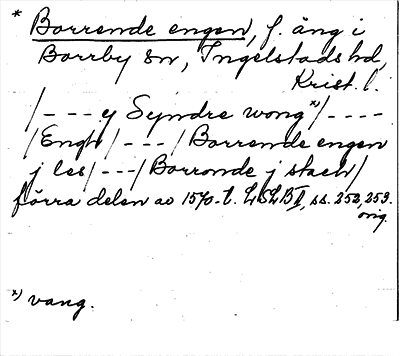 * Borrende engen, f. äng i
Borrby sn, Ingelstads hd,
Krist. l.
/---y Syndre wong x)/----
/Engh/---/Borrende engen
j les/---/Borronde j staeh/
förra delen av 1570-t. LSLB II, ss. 252, 253.
orig.
x) vang.